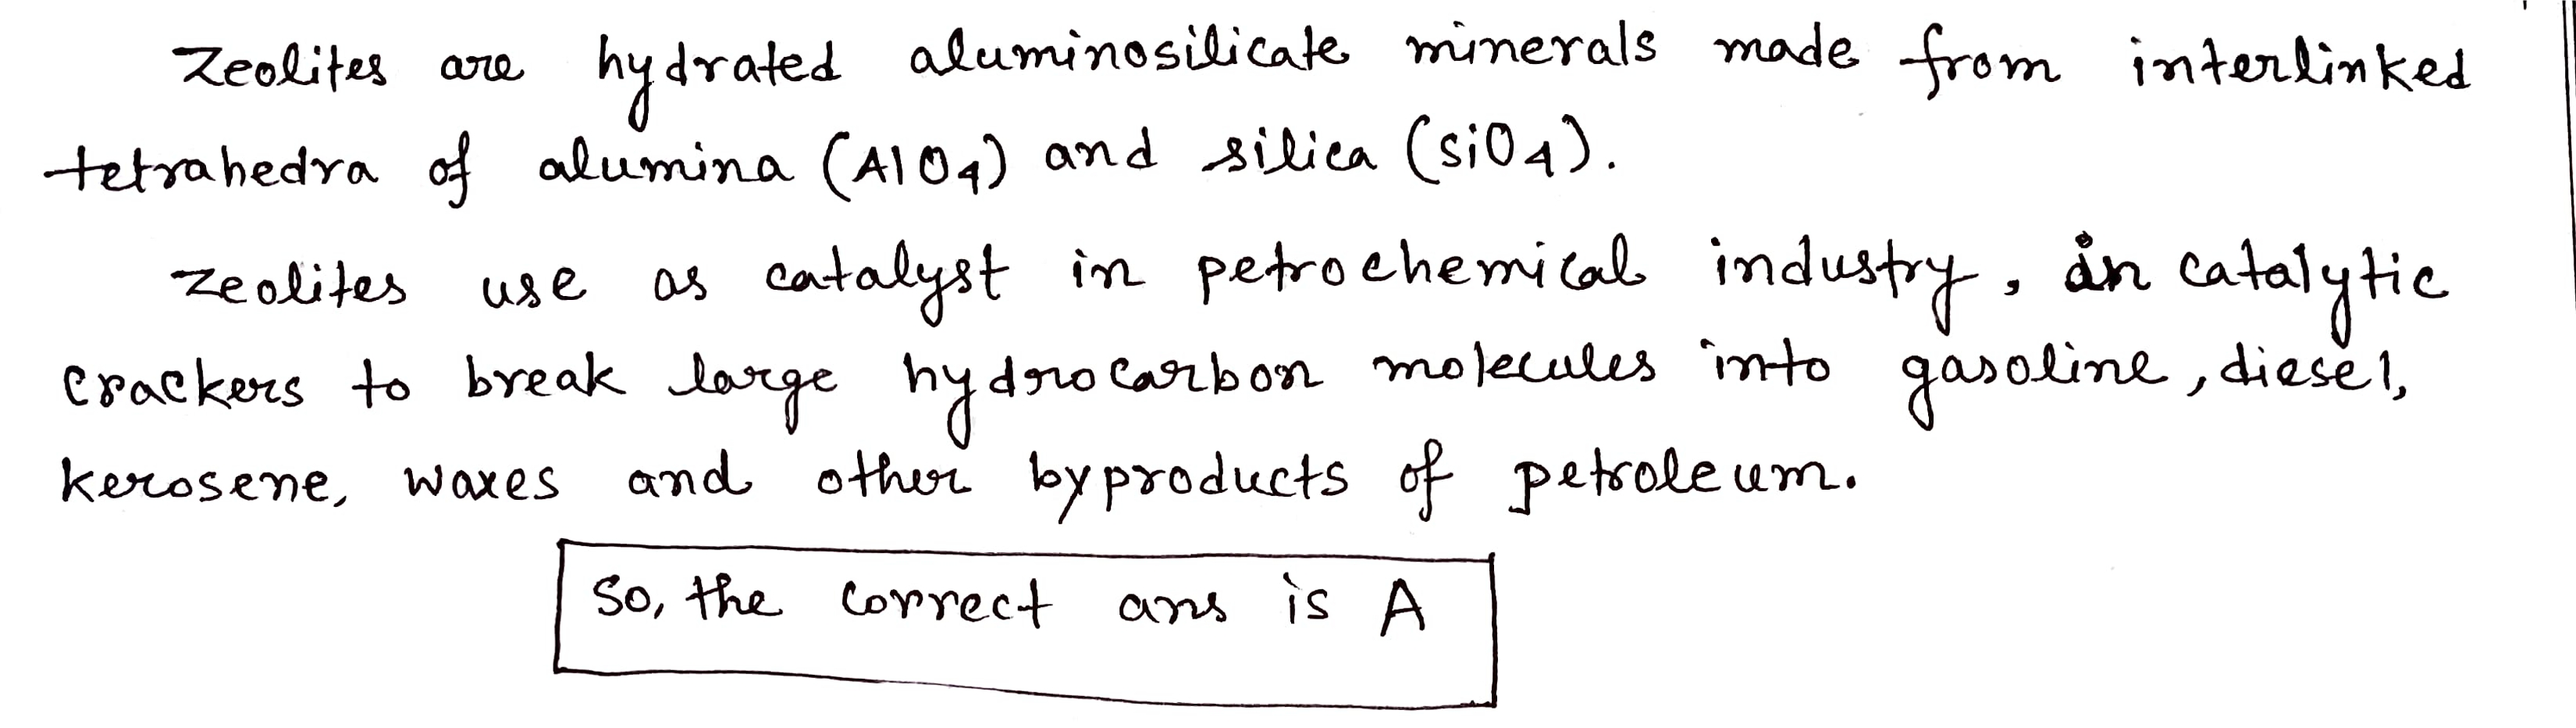 Zeolites are hydrated aluminosilicate minerals made from interlinked
tetrahedra of alumina (AlO4) and silica (SiO4).
Zeolites use as catalyst in petrochemical industry, in catalytic
crackers to break large hydrocarbon molecules into gasoline, diesel,
kerosene, waxes and other byproducts of petroleum.
So, the correct ans is A